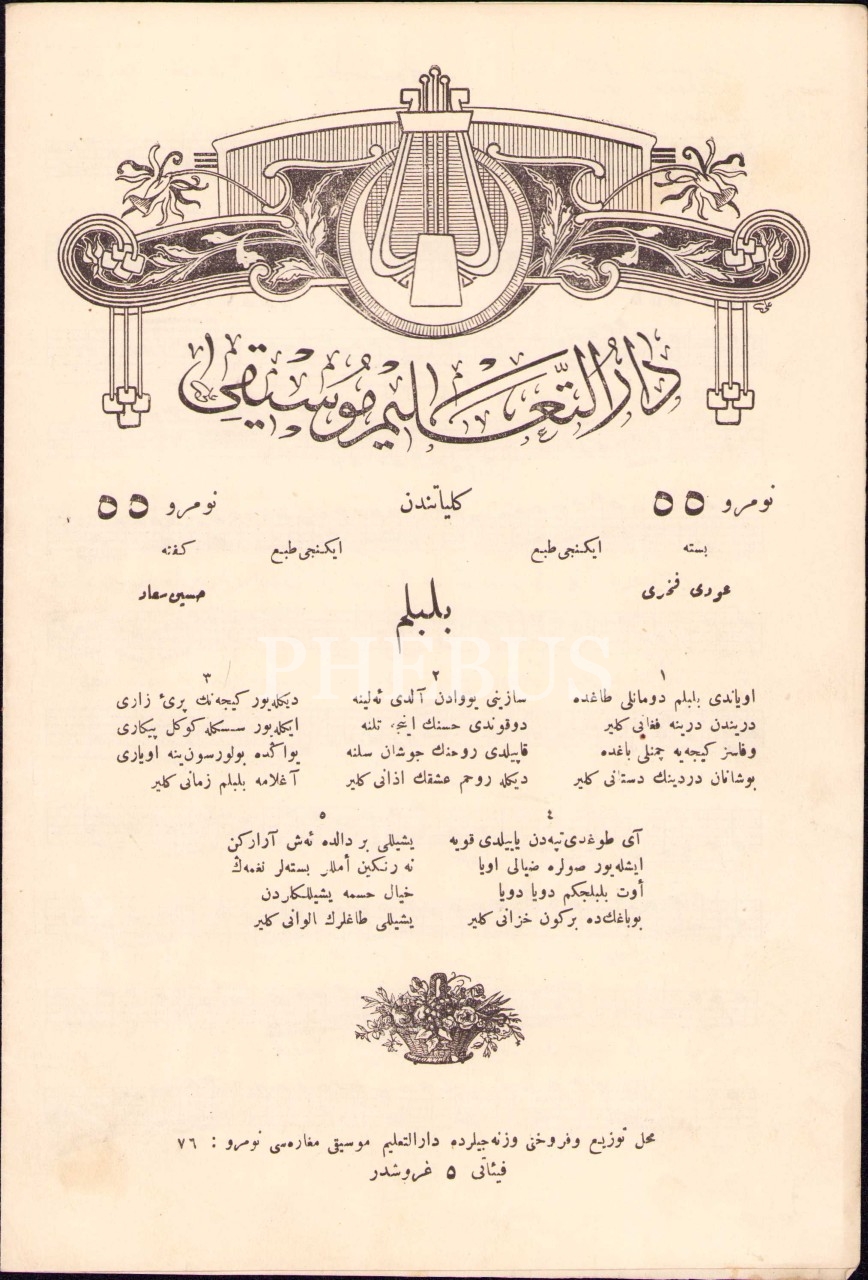 دار التعليم موسيقى
نومرو ٥٥ كلياتندن نومرو ٥٥
بسته ايكنجى طبع ايكنجى طبع كفته
عودى فخرى حسين سعاد
بلبلم
PHEBUS
١
اوياندى بلبلم دومانلى طاغده
دريندن درينه فغانى كلير
وفاسز كيجه يه چمنلى باغده
بوشانان دردينك دستانى كلير
٢
سازينى يووادن آلدى ئه لينه
دوقوندى حسنك اينجه تلنه
قاپيلدى روحنك جوشان سلنه
ديكله روحم عشقك اذانى كلير
٣
ديكله يور كيجه نك پرئ زارى
ايكله يور سسكله كوكل پيكارى
يواكده بولورسون ينه اويارى
آغلامه بلبلم زمانى كلير
٤
آى طوغدى تپه دن ياييلدى قويه
ايشله يور صولره ضيالى اويا
أوت بلبلجكم دويا دويا
بوباغكده بركون خزانى كلير
٥
يشيللى بر دالده ئه ش آراركن
نه رنكين أمللر بسته لر نغمه ك
خيال حسمه يشيللكلردن
يشيللى طاغلرك الوانى كلير
محل توزيع وفروختى وزنه جيلرده دارالتعليم موسيقى مغازه سى نومرو : ٧٦
فيئاتى ٥ غروشدر